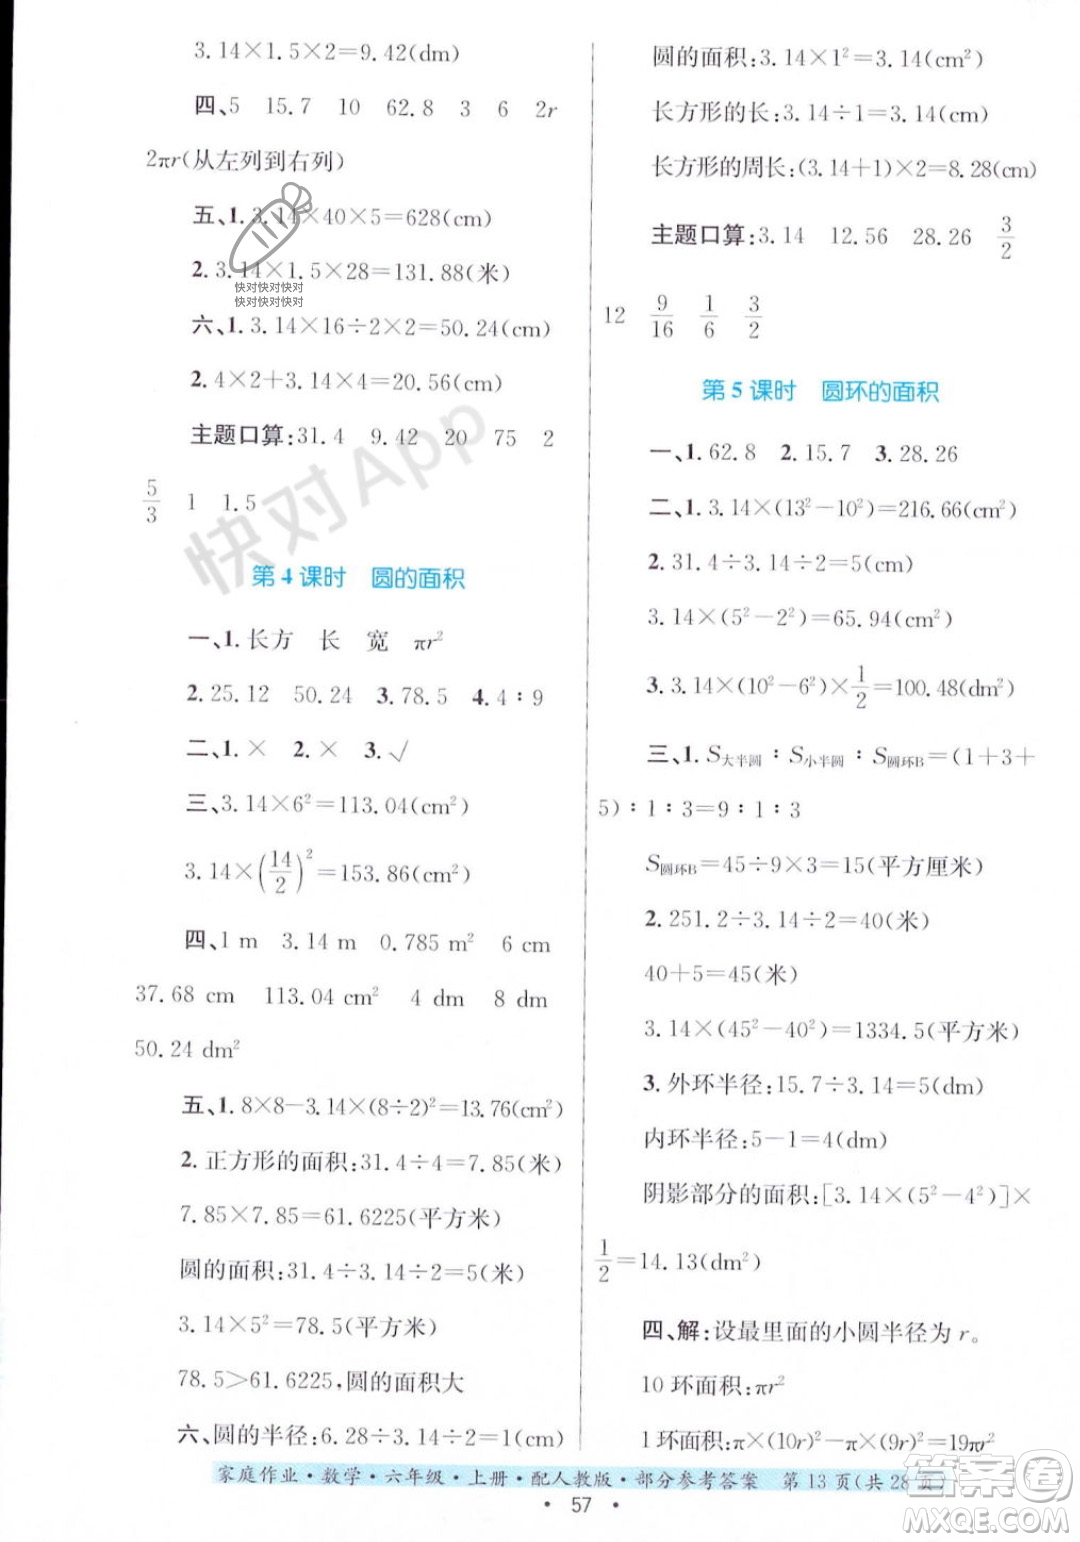 3.14×1.5×2=9.42(dm)
四、5 15.7 10 62.8 3 6 2r
2πr(从左列到右列)
五、1.3.14×40×5=628(cm)
2.3.14×1.5×28=131.88(米)
快对快对快对
快对快对快对
六、1.3.14×16÷2×2=50.24(cm)
2.4×2+3.14×4=20.56(cm)
主题口算:31.4 9.42 20 75 2
5/3 1 1.5
快对App
第4课时 圆的面积
一、1.长方 长 宽 πr²
2.25.12 50.24 3.78.5 4.4∶9
二、1.× 2.× 3.√
三、3.14×6²=113.04(cm²)
3.14×(14/2)²=153.86(cm²)
四、1 m 3.14 m 0.785 m² 6 cm
37.68 cm 113.04 cm² 4 dm 8 dm
50.24 dm²
五、1.8×8-3.14×(8÷2)²=13.76(cm²)
2.正方形的面积:31.4÷4=7.85(米)
7.85×7.85=61.6225(平方米)
圆的面积:31.4÷3.14÷2=5(米)
3.14×5²=78.5(平方米)
78.5>61.6225,圆的面积大
六、圆的半径:6.28÷3.14÷2=1(cm)
圆的面积:3.14×1²=3.14(cm²)
长方形的长:3.14÷1=3.14(cm)
长方形的周长:(3.14+1)×2=8.28(cm)
主题口算:3.14 12.56 28.26 3/2
12 9/16 1/6 3/2
第5课时 圆环的面积
一、1.62.8 2.15.7 3.28.26
二、1.3.14×(13²-10²)=216.66(cm²)
2.31.4÷3.14÷2=5(cm)
3.14×(5²-2²)=65.94(cm²)
3.3.14×(10²-6²)×1/2=100.48(dm²)
三、1.S大半圆∶S小半圆∶S圆环B=(1+3+
5)∶1∶3=9∶1∶3
S圆环B=45÷9×3=15(平方厘米)
2.251.2÷3.14÷2=40(米)
40+5=45(米)
3.14×(45²-40²)=1334.5(平方米)
3.外环半径:15.7÷3.14=5(dm)
内环半径:5-1=4(dm)
阴影部分的面积:[3.14×(5²-4²)]×
1/2=14.13(dm²)
四、解:设最里面的小圆半径为r。
10环面积:πr²
1环面积:π×(10r)²-π×(9r)²=19πr²
家庭作业·数学·六年级·上册·配人教版·部分参考答案 第13页(共28页)
·57·
答案圈
MXQE.COM